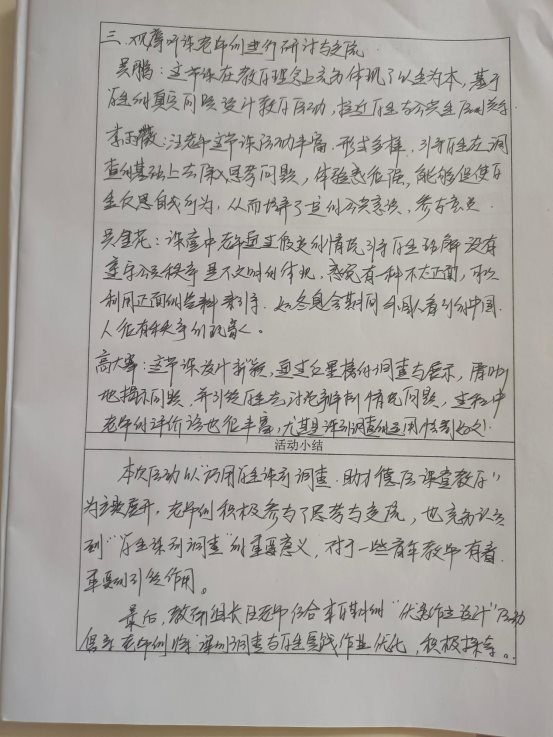 三、观摩听课老师们进行研讨与交流
吴鹏：这节课在教学理念上充分体现了以生为本，基于
学生的真实问题设计教学活动，拉近学生与公共生活的关系
李雨薇：汪老师这节课活动丰富，形式多样，引导学生在调
查的基础上去深入思考问题，体验感很强，能够促使学
生反思自我行为，从而培养了学生的公共意识，参与意识
吴金花：课堂中老师通过假定的情境引导学生理解没有
遵守公共秩序是不文明的体现，感觉有一种不太正面，可以
利用正面的资料来引导。如冬奥会期间外国人看到的中国
人很有秩序的现象。
高大：这节课设计新颖，通过红黑榜的调查与展示，清晰
地揭示问题，并引发学生去讨论辨析情境问题，过程中
老师的评价语也很丰富，尤其是课前调查的运用恰到好处。
活动小结
本次活动以“巧用学生课前调查，助力德法课堂教学”
为主题展开，老师们积极参与了思考与交流，也充分认识
到“学生课前调查”的重要意义，对于一些青年教师有着
重要的引领作用。
最后，教研组长汪老师结合本学期的“优秀作业设计”活动
倡导老师们将课前调查与学生实践作业优化，积极探索。